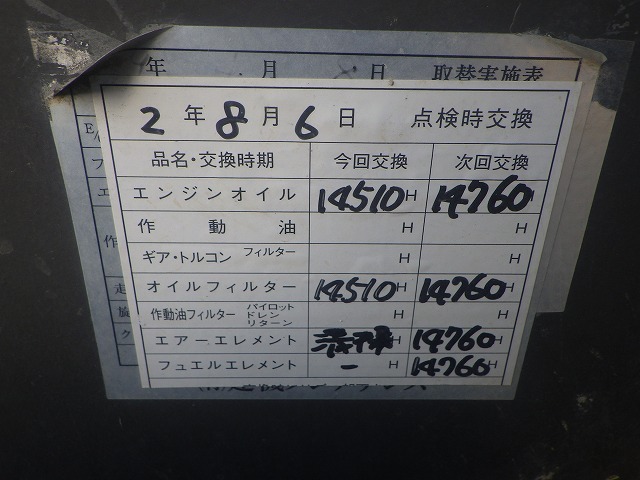 年 月 日 取替実施表
2年8月6日 点検時交換
品名・交換時期 今回交換 次回交換
エンジンオイル 14510H 14760H
作動油 H H
ギア・トルコン フィルター H H
オイルフィルター 14510H 14760H
作動油フィルター パイロット ドレン リターン H H
エアーエレメント 清掃 H 14760H
フュエルエレメント - H 14760H